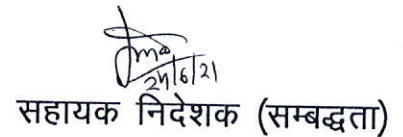 24/6/21
सहायक निदेशक (सम्बद्धता)